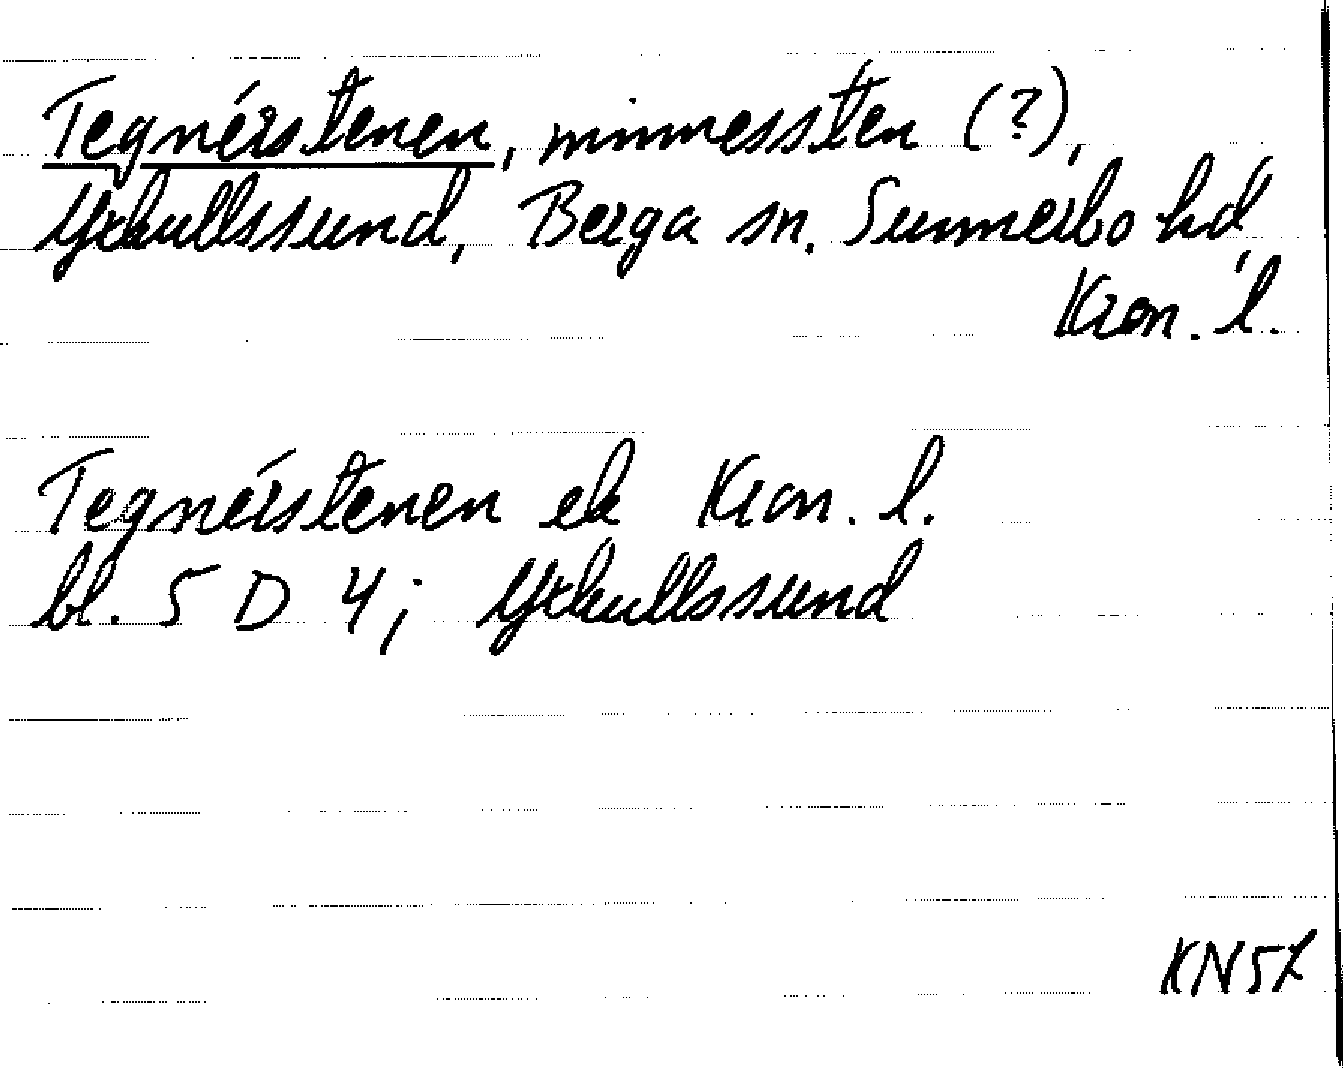 Tegnérstenen, minnessten (?),
Yxkullssund, Berga sn. Sunnerbo hd,
Kron. l.
Tegnérstenen ek Kron. l.
bl. 5 D 4; Yxkullssund